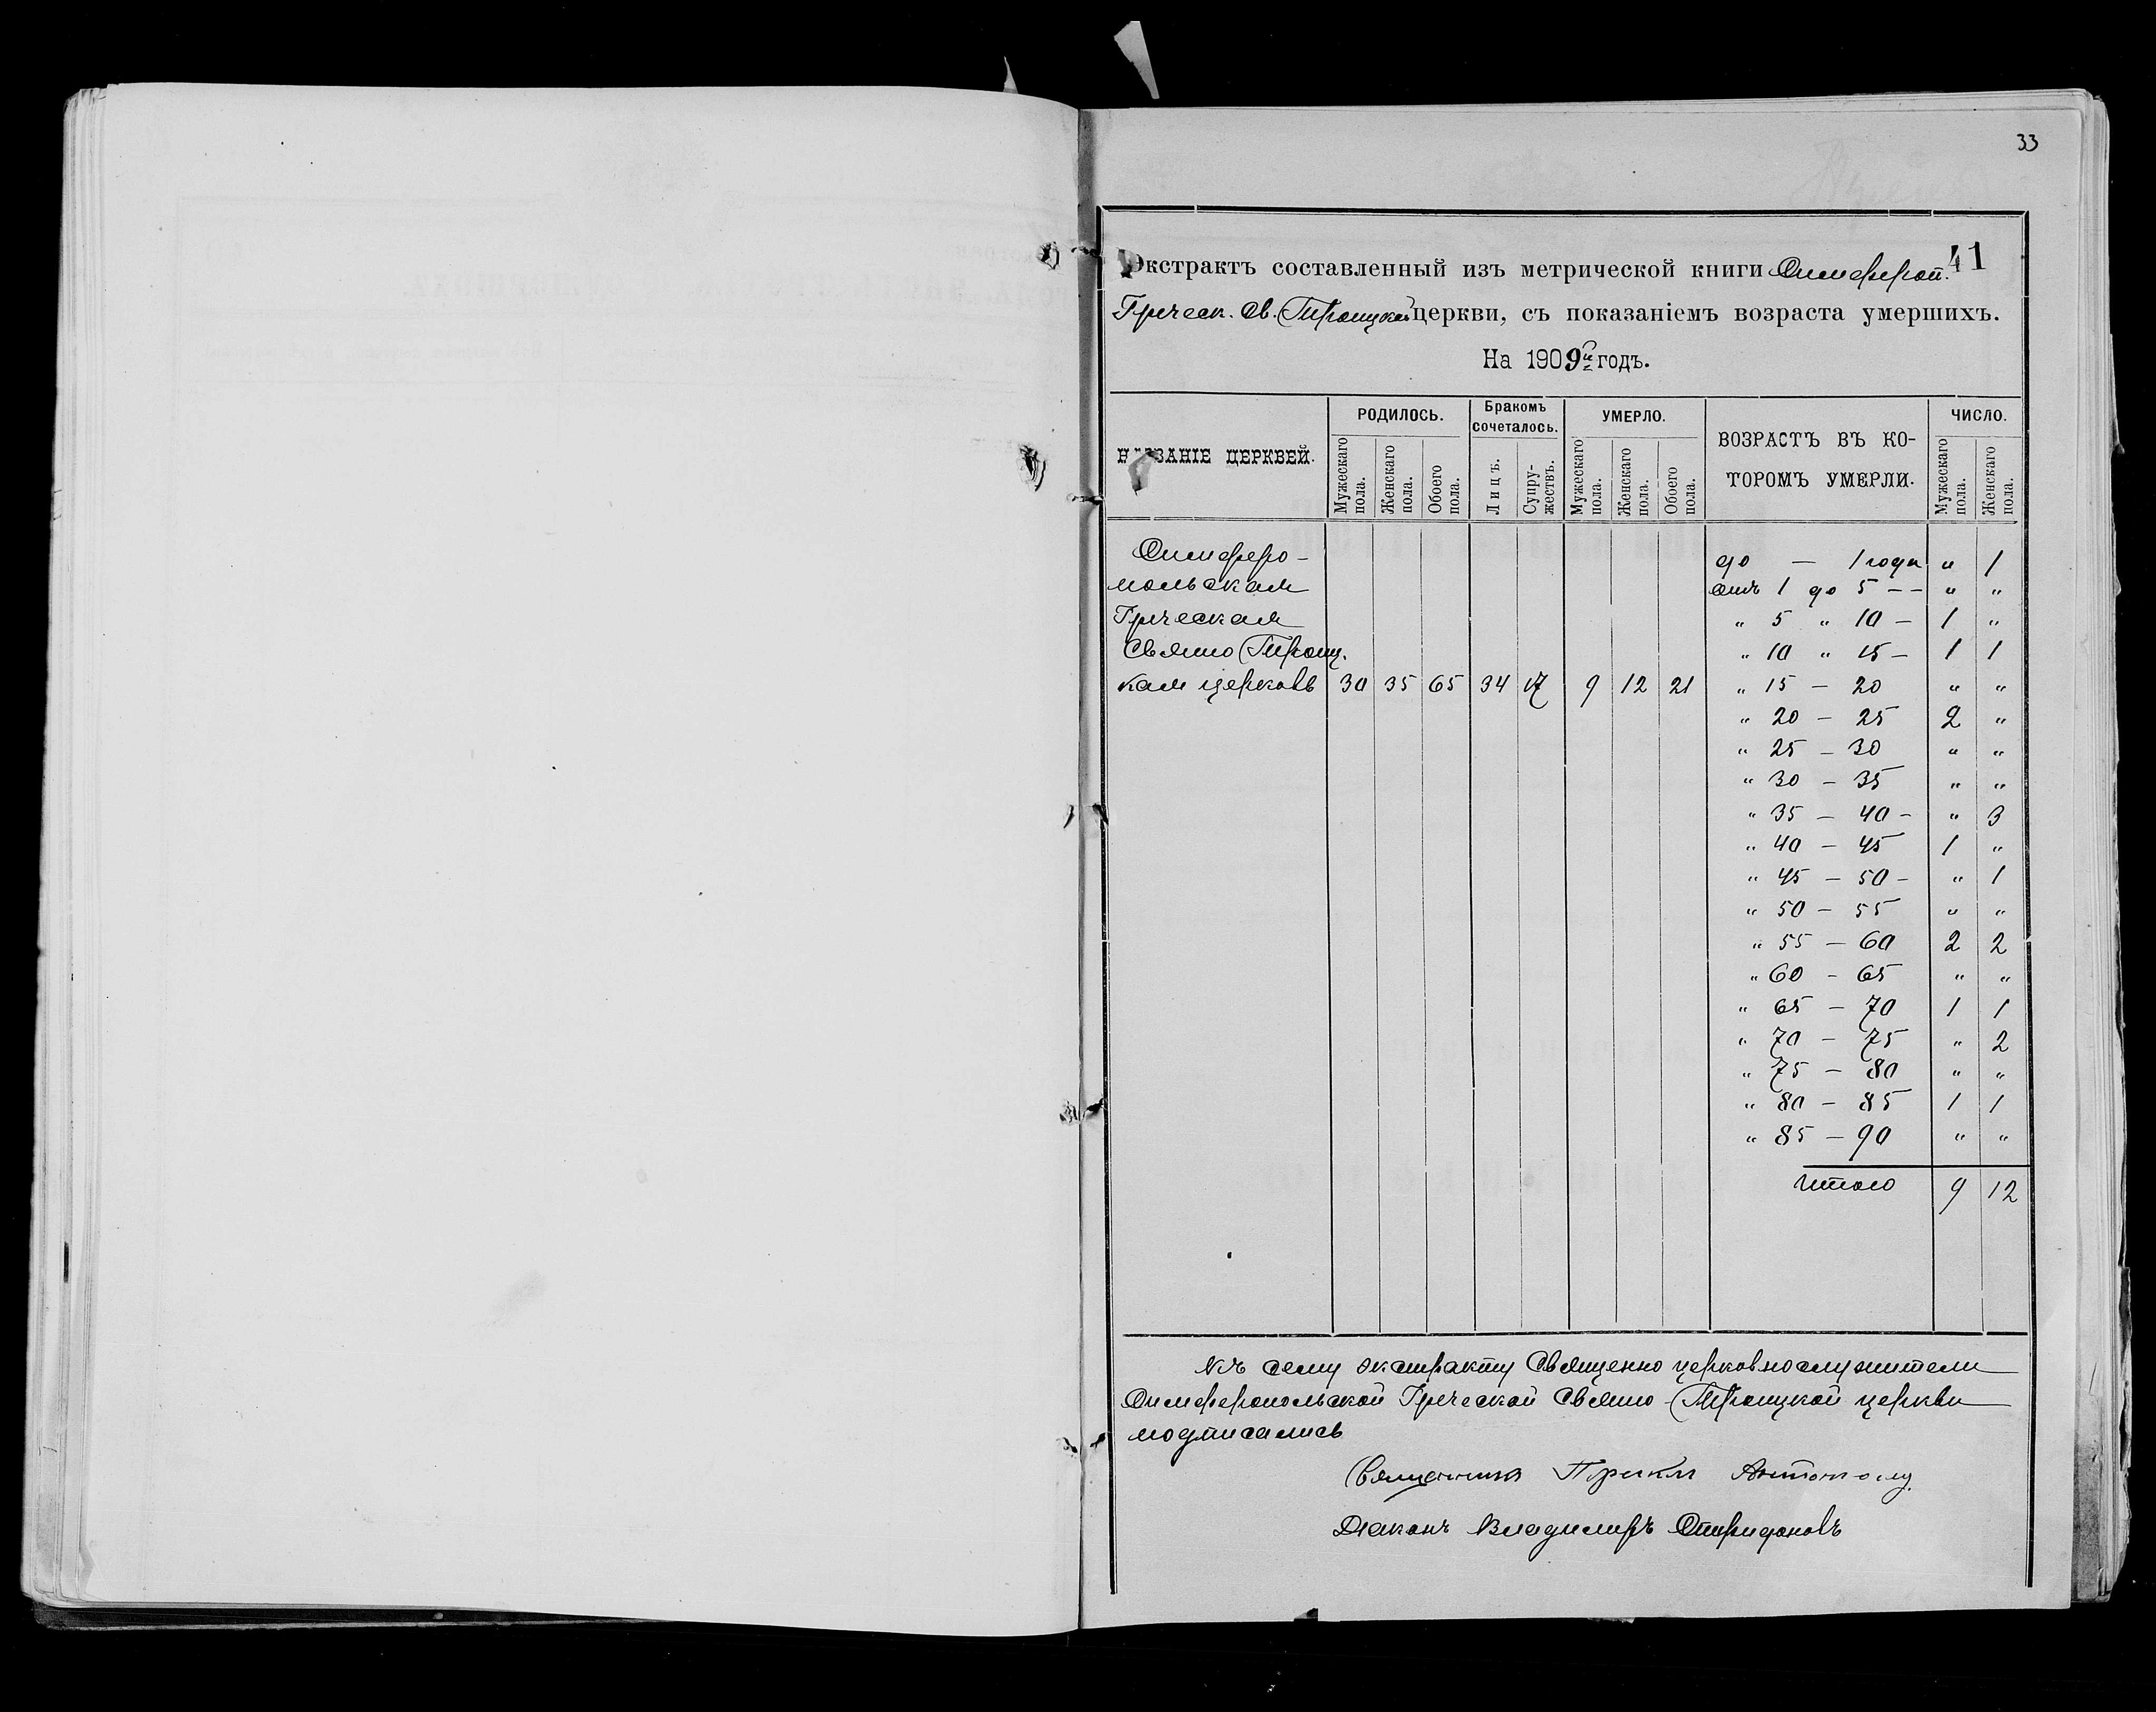 33
41
Экстрактъ составленный изъ метрической книги Симфероп.
Греческ. Св. Троицкой церкви, съ показаніемъ возраста умершихъ.
На 1909й годъ.
НАЗВАНІЕ ЦЕРКВЕЙ. РОДИЛОСЬ. Бракомъ сочеталось. УМЕРЛО. ВОЗРАСТЪ ВЪ КО- ЧИСЛО.
ТОРОМЪ УМЕРЛИ.
Мужескаго пола. Женскаго пола. Обоего пола. Лицъ. Супру-жествъ. Мужескаго пола. Женскаго пола. Обоего пола. Мужескаго пола. Женскаго пола.
Симферо- до — 1 года " 1
польская отъ 1 до 5 — — " "
Греческая " 5 " 10 — 1 "
Свято Троиц. " 10 " 15 — 1 1
кая церковь 30 35 65 34 17 9 12 21 " 15 — 20 " "
" 20 — 25 2 "
" 25 — 30 " "
" 30 — 35 " "
" 35 — 40 — " 3
" 40 — 45 1 "
" 45 — 50 — " 1
" 50 — 55 " "
" 55 — 60 2 2
" 60 — 65 " "
" 65 — 70 1 1
" 70 — 75 " 2
" 75 — 80 " "
" 80 — 85 1 1
" 85 — 90 " "
Итого 9 12
Къ сему экстракту Священно церковнослужители
Симферопольской Греческой Свято-Троицкой церкви
подписались
Священникъ
Діаконъ Владимиръ Спиридоновъ